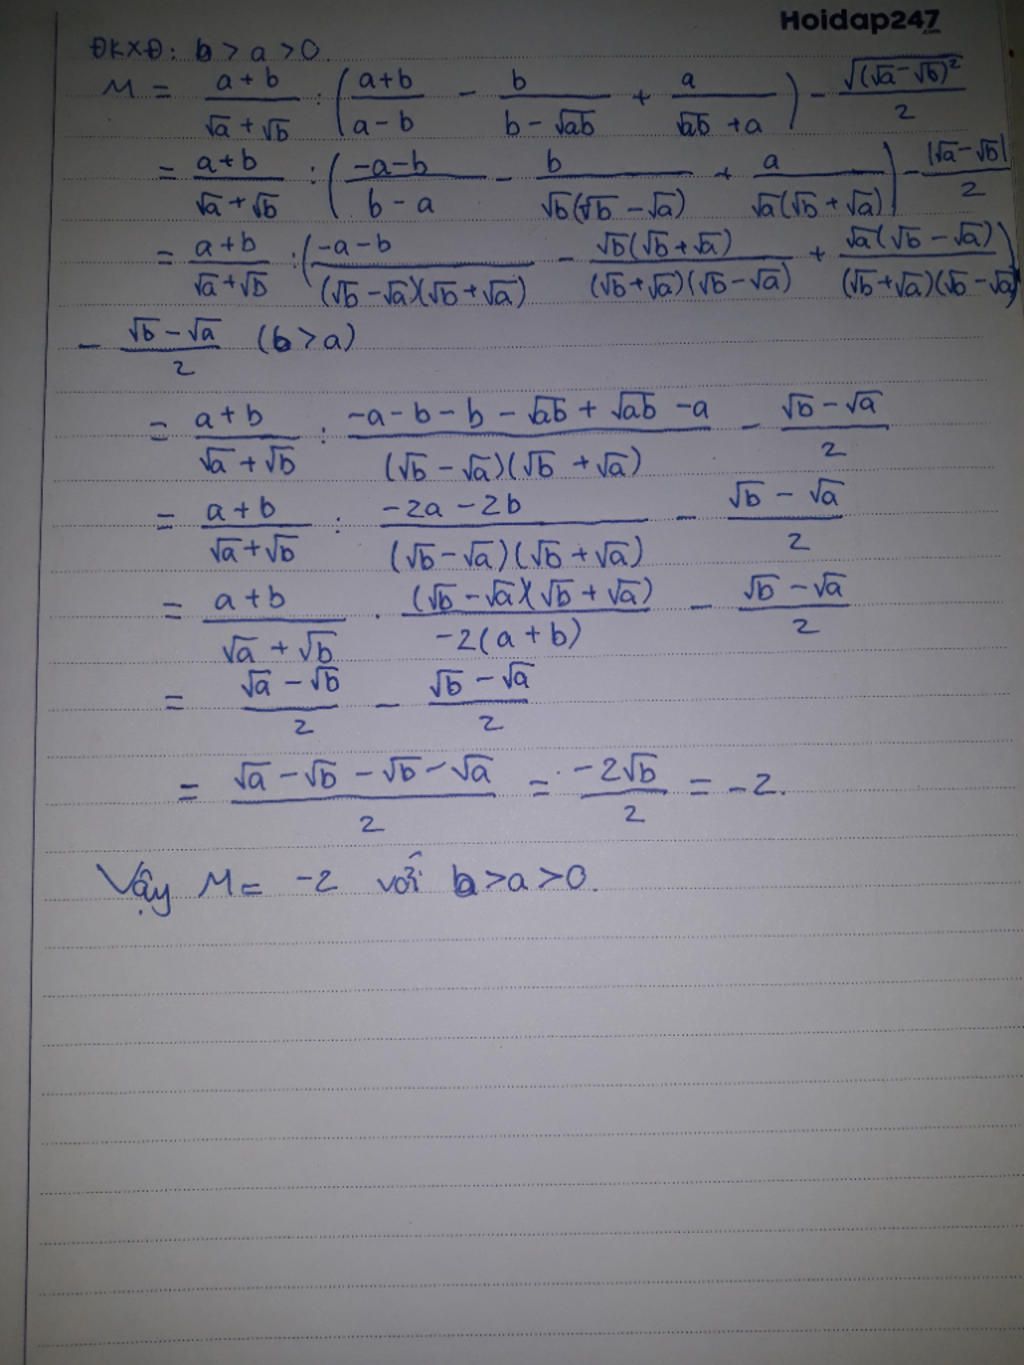 Hoidap247
ĐKXĐ: b > a > 0.
M = (a+b)/(√a+√b) : ((a+b)/(a-b) - b/(b-√ab) + a/(√ab+a)) - √((√a-√b)²)/2
= (a+b)/(√a+√b) : ((-a-b)/(b-a) - b/(√b(√b-√a)) + a/(√a(√b+√a))) - |√a-√b|/2
= (a+b)/(√a+√b) : ((-a-b)/((√b-√a)(√b+√a)) - √b(√b+√a)/((√b+√a)(√b-√a)) + √a(√b-√a)/((√b+√a)(√b-√a)))
- (√b-√a)/2 (b>a)
= (a+b)/(√a+√b) : (-a-b-b-√ab+√ab-a)/((√b-√a)(√b+√a)) - (√b-√a)/2
= (a+b)/(√a+√b) : (-2a-2b)/((√b-√a)(√b+√a)) - (√b-√a)/2
= (a+b)/(√a+√b) . (√b-√a)(√b+√a)/(-2(a+b)) - (√b-√a)/2
= (√a-√b)/2 - (√b-√a)/2
= (√a-√b-√b-√a)/2 = (-2√b)/2 = -2.
Vậy M = -2 với b>a>0.